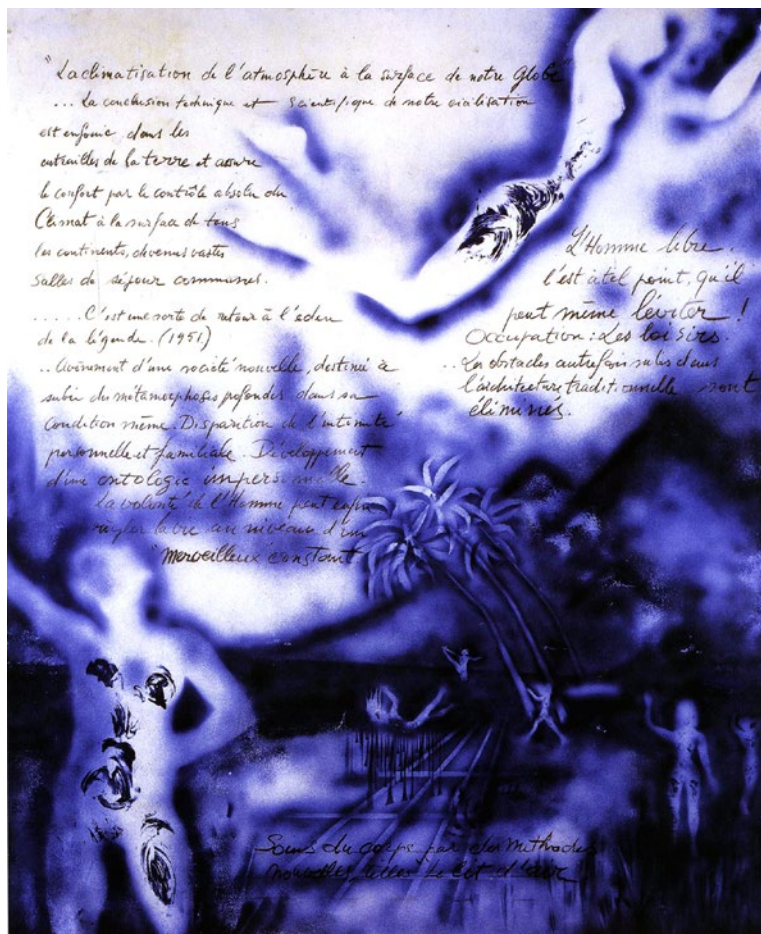 "La climatisation de l'atmosphère à la surface de notre Globe"
... La conclusion technique et scientifique de notre civilisation
est enfouie dans les
entrailles de la terre et assure
le confort par le contrôle absolu du
Climat à la surface de tous
les continents, devenus vastes
salles de séjour communes.
..... C'est une sorte de retour à l'eden
de la légende. (1951)
.. Avènement d'une société nouvelle, destinée à
subir des métamorphoses profondes dans sa
condition même. Disparition de l'intimité
personnelle et familiale. Développement
d'une ontologie impersonnelle.
La volonté de l'Homme peut enfin
régler la vie au niveau d'un
"Merveilleux constant
L'Homme libre
l'est à tel point, qu'il
peut même léviter !
Occupation : Les loisirs.
.. Les obstacles autrefois subis dans
l'architecture traditionnelle sont
éliminés.
Soins du corps par des méthodes
nouvelles, telles le lit d'air